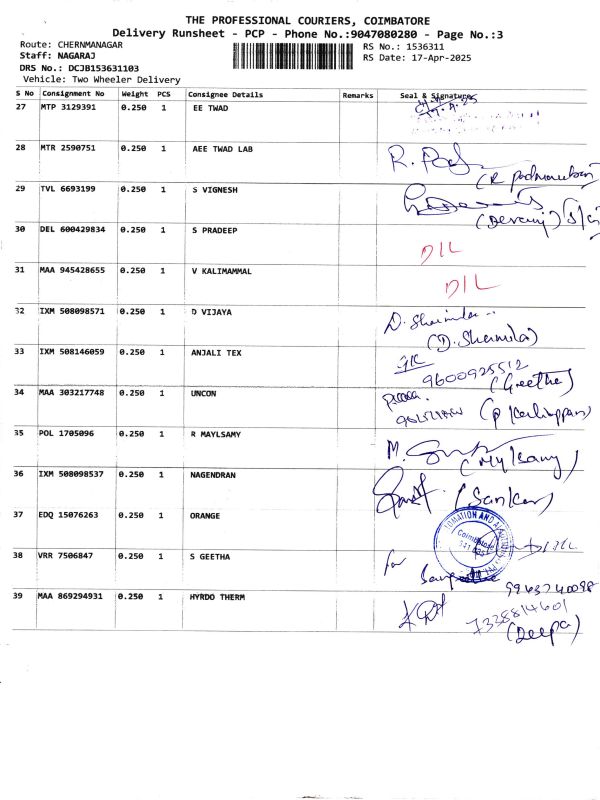 THE PROFESSIONAL COURIERS, COIMBATORE
Delivery Runsheet - PCP - Phone No.:9047080280 - Page No.:3
Route: CHERNMANAGAR
Staff: NAGARAJ
DRS No.: DCJB153631103
Vehicle: Two Wheeler Delivery
RS No.: 1536311
RS Date: 17-Apr-2025
S No Consignment No Weight PCS Consignee Details Remarks Seal & Signature
27 MTP 3129391 0.250 1 EE TWAD
28 MTR 2590751 0.250 1 AEE TWAD LAB
R. Pad
(R Padmanaban)
29 TVL 6693199 0.250 1 S VIGNESH
(Devaraj)
30 DEL 600429834 0.250 1 S PRADEEP
D/L
31 MAA 945428655 0.250 1 V KALIMAMMAL
D/L
32 IXM 508098571 0.250 1 D VIJAYA
D. Sharmila
(D. Sharmila)
33 IXM 508146059 0.250 1 ANJALI TEX
9600925512
(Geetha)
34 MAA 303217748 0.250 1 UNCON
35 POL 1705096 0.250 1 R MAYLSAMY
M.
(Mylsamy)
36 IXM 508098537 0.250 1 NAGENDRAN
(Sankar)
37 EDQ 15076263 0.250 1 ORANGE
Coimbatore
38 VRR 7506847 0.250 1 S GEETHA
for
39 MAA 869294931 0.250 1 HYRDO THERM
7338814601
(Deepa)